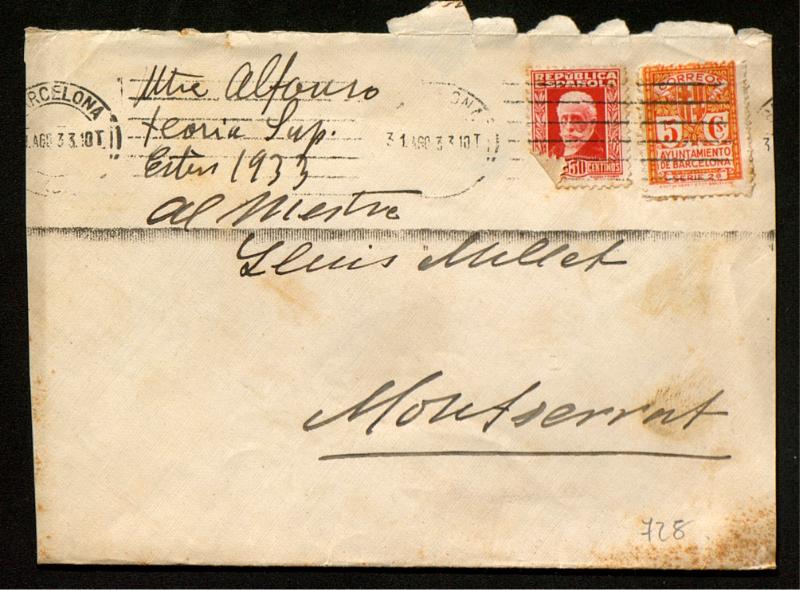 BARCELONA
1.AGO 33.10T.
31.AGO 33.10T
Mtre Alfonso
teoria Sup.
Estiu 1933
al Mestre
Lluis Millet
Montserrat
728
REPUBLICA
ESPAÑOLA
30 CENTIMOS
CORREOS
5 Cs
AYUNTAMIENTO
DE BARCELONA